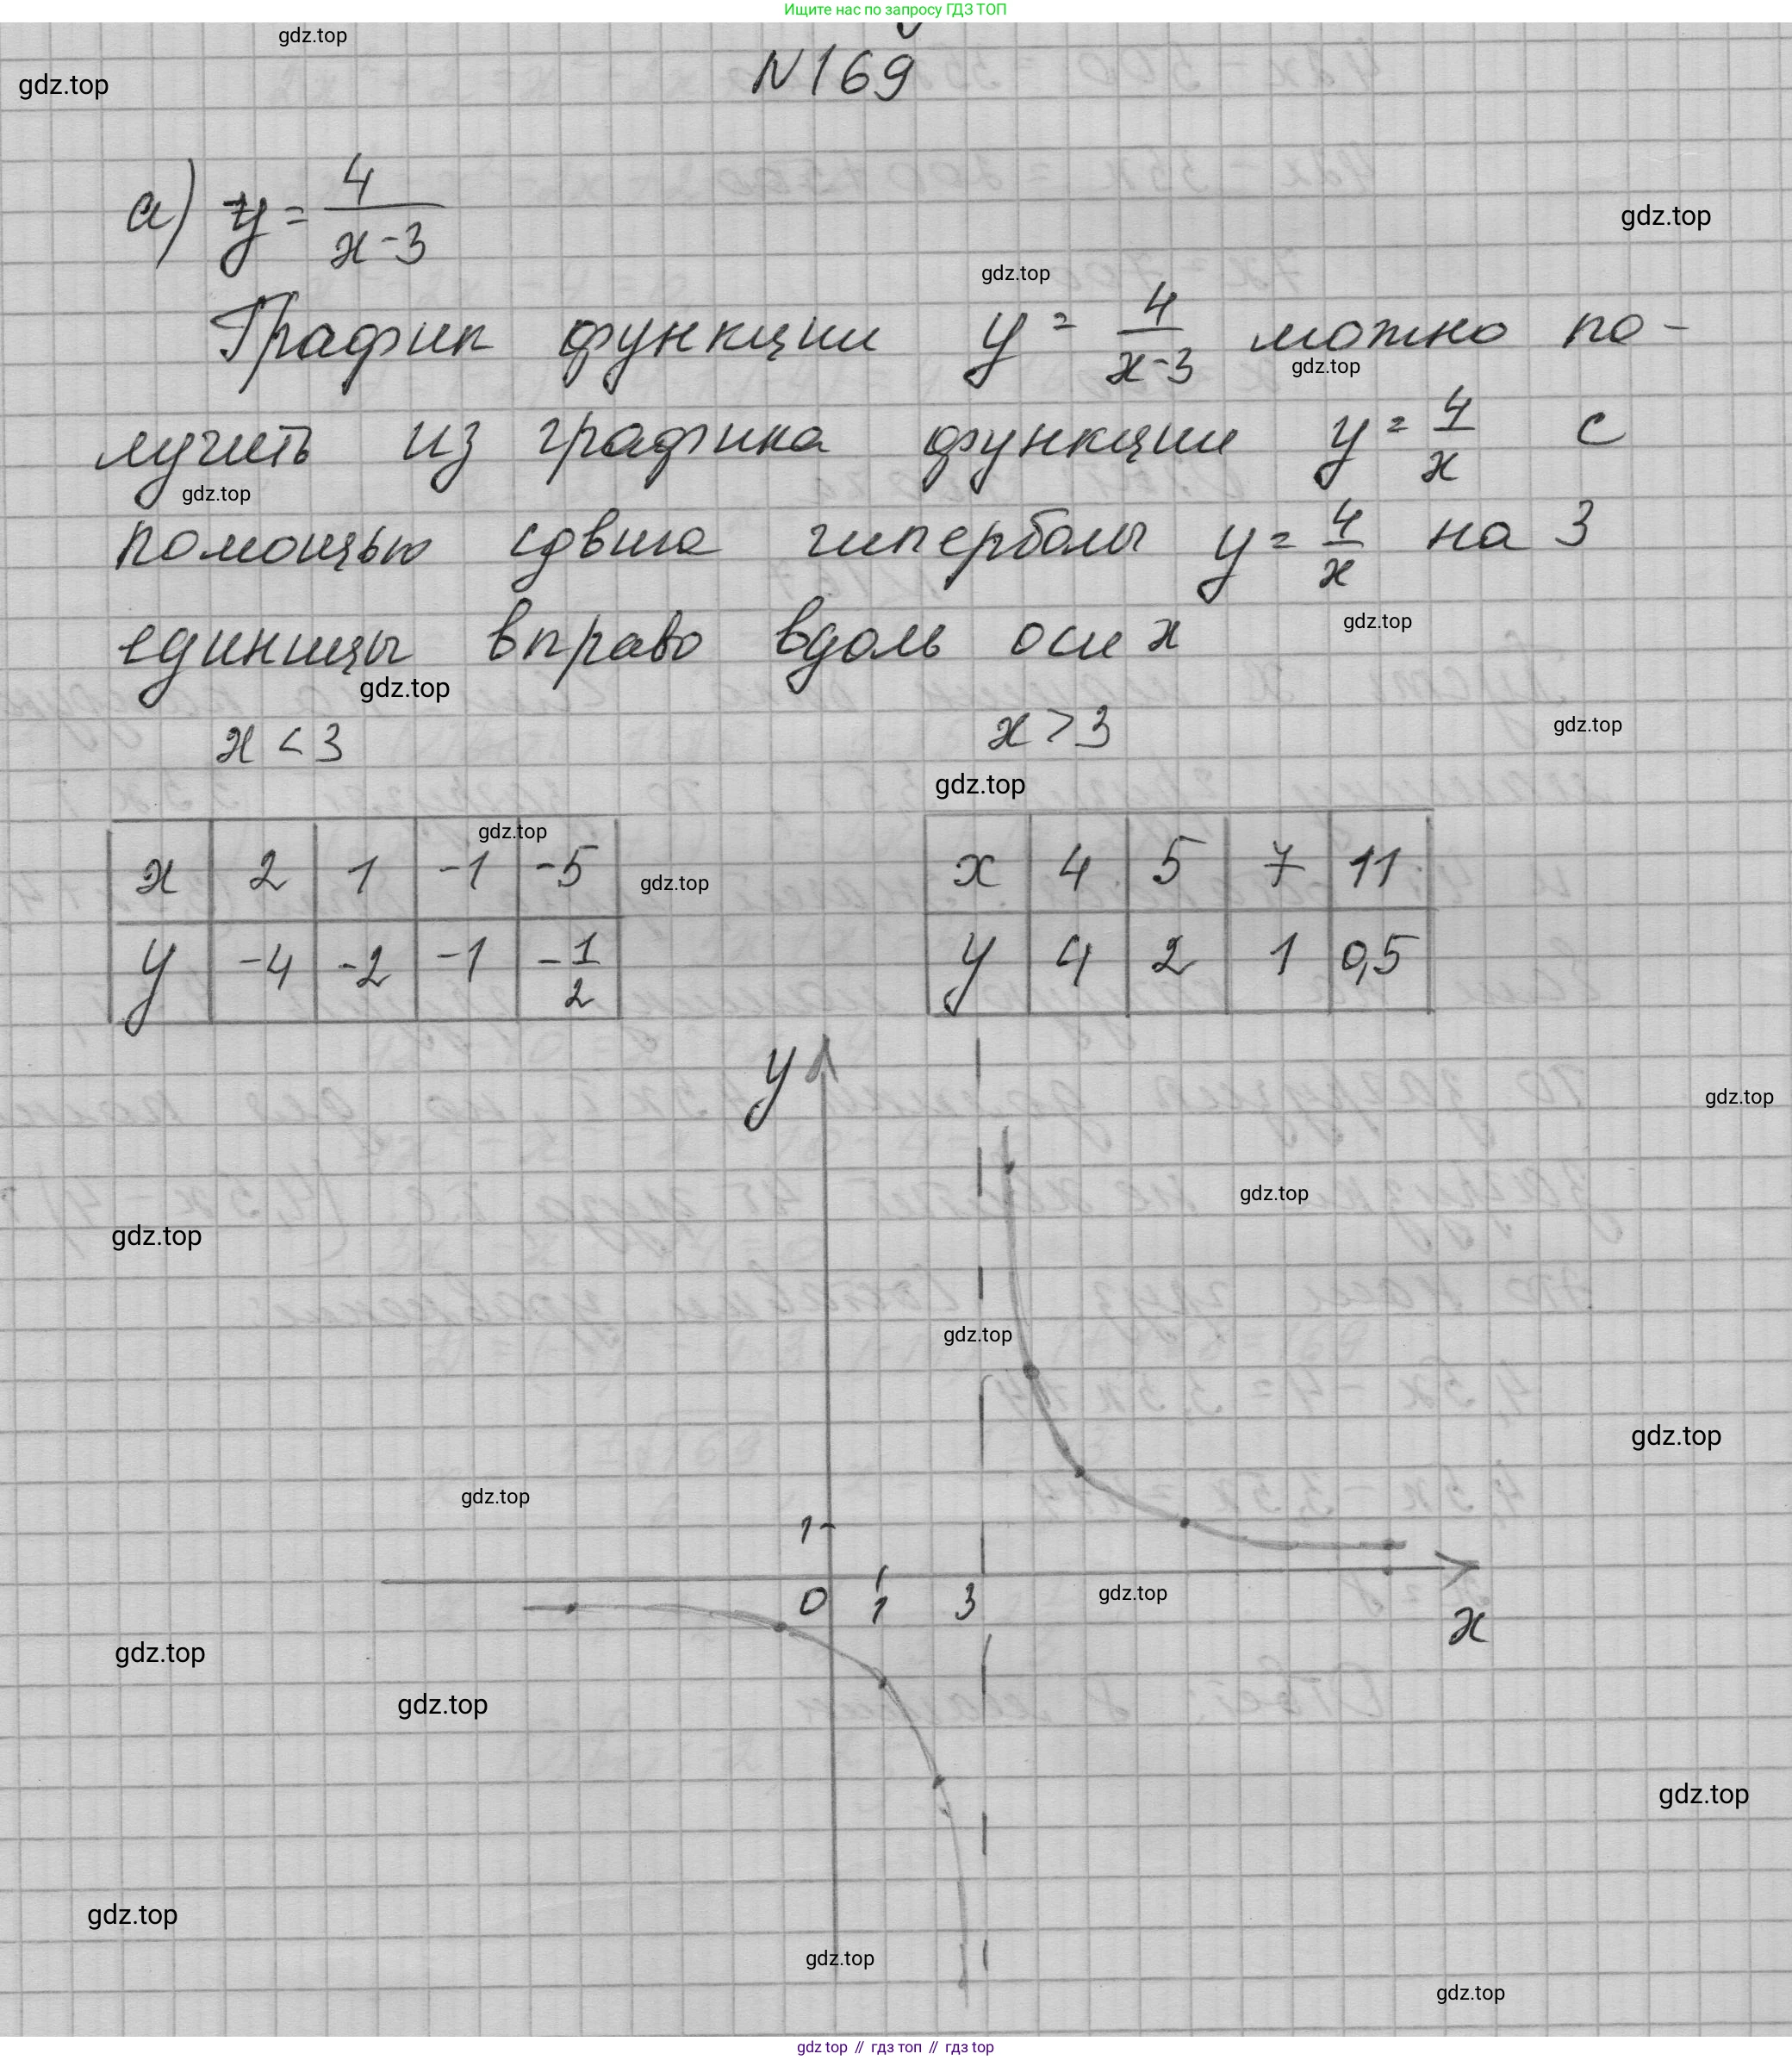 Ищите нас по запросу ГДЗ ТОП
gdz.top
gdz.top
N169
а) y = 4/(x-3)
gdz.top
gdz.top
График функции y = 4/(x-3) можно по-
gdz.top
лучить из графика функции y = 4/x с
gdz.top
помощью сдвига гиперболы y = 4/x на 3
единицы вправо вдоль оси x
gdz.top
gdz.top
x < 3 x > 3
gdz.top
gdz.top
gdz.top
x 2 1 -1 -5
gdz.top
y -4 -2 -1 -1/2
x 4 5 7 11
y 4 2 1 0,5
y
gdz.top
gdz.top
gdz.top
gdz.top
gdz.top
gdz.top
1
0 1 3
gdz.top
x
gdz.top
gdz.top
gdz.top
gdz.top
gdz.top
gdz.top
gdz top // гдз топ // гдз top